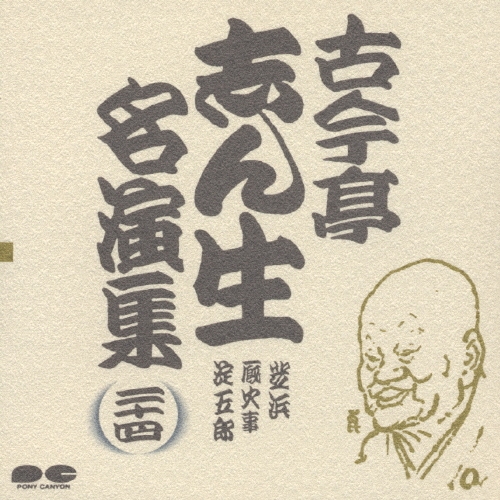 古今亭
志ん生
名演集
二十四
芝浜
厩火事
淀五郎
PONY CANYON